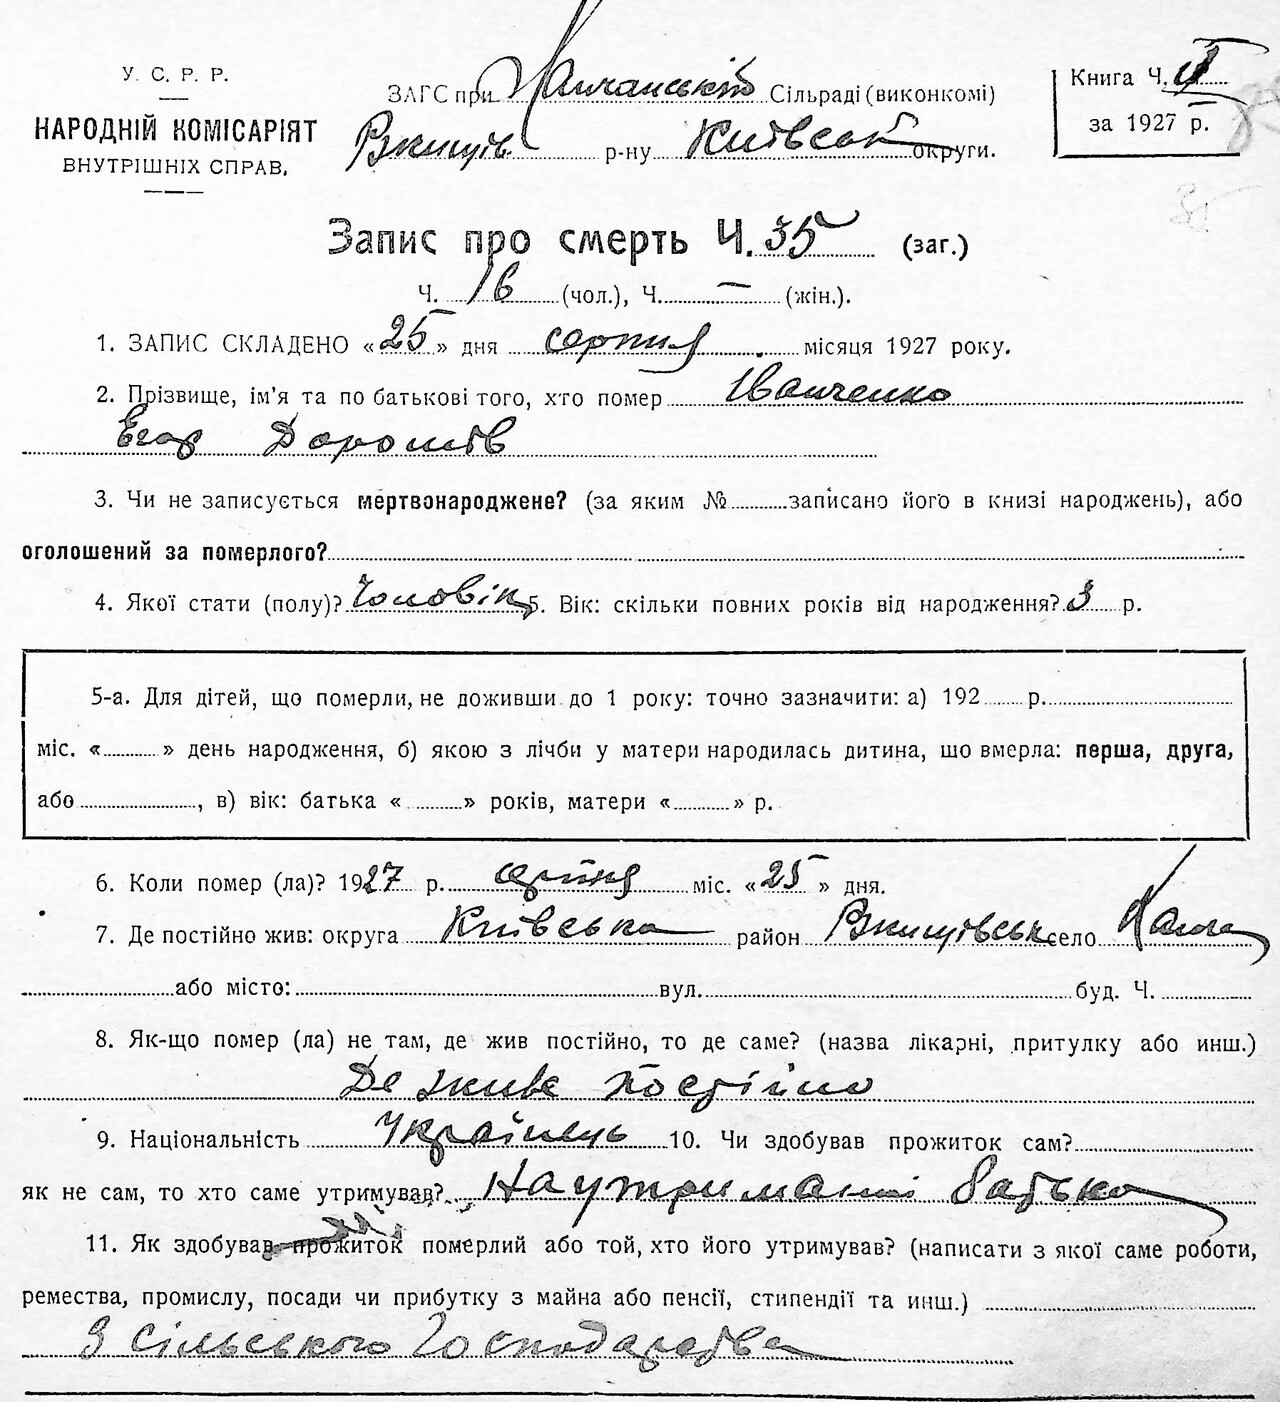 У. С. Р. Р.
НАРОДНІЙ КОМІСАРІЯТ
ВНУТРІШНІХ СПРАВ.
ЗАГС при Сільраді (виконкомі)
Ржищів р-ну Київськ округи.
Книга Ч. II
за 1927 р.
Запис про смерть Ч. 35 (заг.)
Ч. 16 (чол.), Ч. — (жін.).
1. ЗАПИС СКЛАДЕНО «25» дня серпня місяця 1927 року.
2. Прізвище, ім'я та по батькові того, хто помер Іванченко
Егор Дорошів
3. Чи не записується мертвонароджене? (за яким № записано його в книзі народжень), або
оголошений за померлого?
4. Якої стати (полу)? Чоловік 5. Вік: скільки повних років від народження? 3 р.
5-а. Для дітей, що померли, не доживши до 1 року: точно зазначити: а) 192 р.
міс. « » день народження, б) якою з лічби у матери народилась дитина, що вмерла: перша, друга,
або , в) вік: батька « » років, матери « » р.
6. Коли помер (ла)? 1927 р. серпня міс. «25» дня.
7. Де постійно жив: округа Київська район Ржищівськ село
або місто: вул. буд. Ч.
8. Як-що помер (ла) не там, де жив постійно, то де саме? (назва лікарні, притулку або инш.)
Де живе постійно
9. Національність Українець 10. Чи здобував прожиток сам?
як не сам, то хто саме утримував? На утриманні батька
11. Як здобував прожиток померлий або той, хто його утримував? (написати з якої саме роботи,
ремества, промислу, посади чи прибутку з майна або пенсії, стипендії та инш.)
З сільського господарства